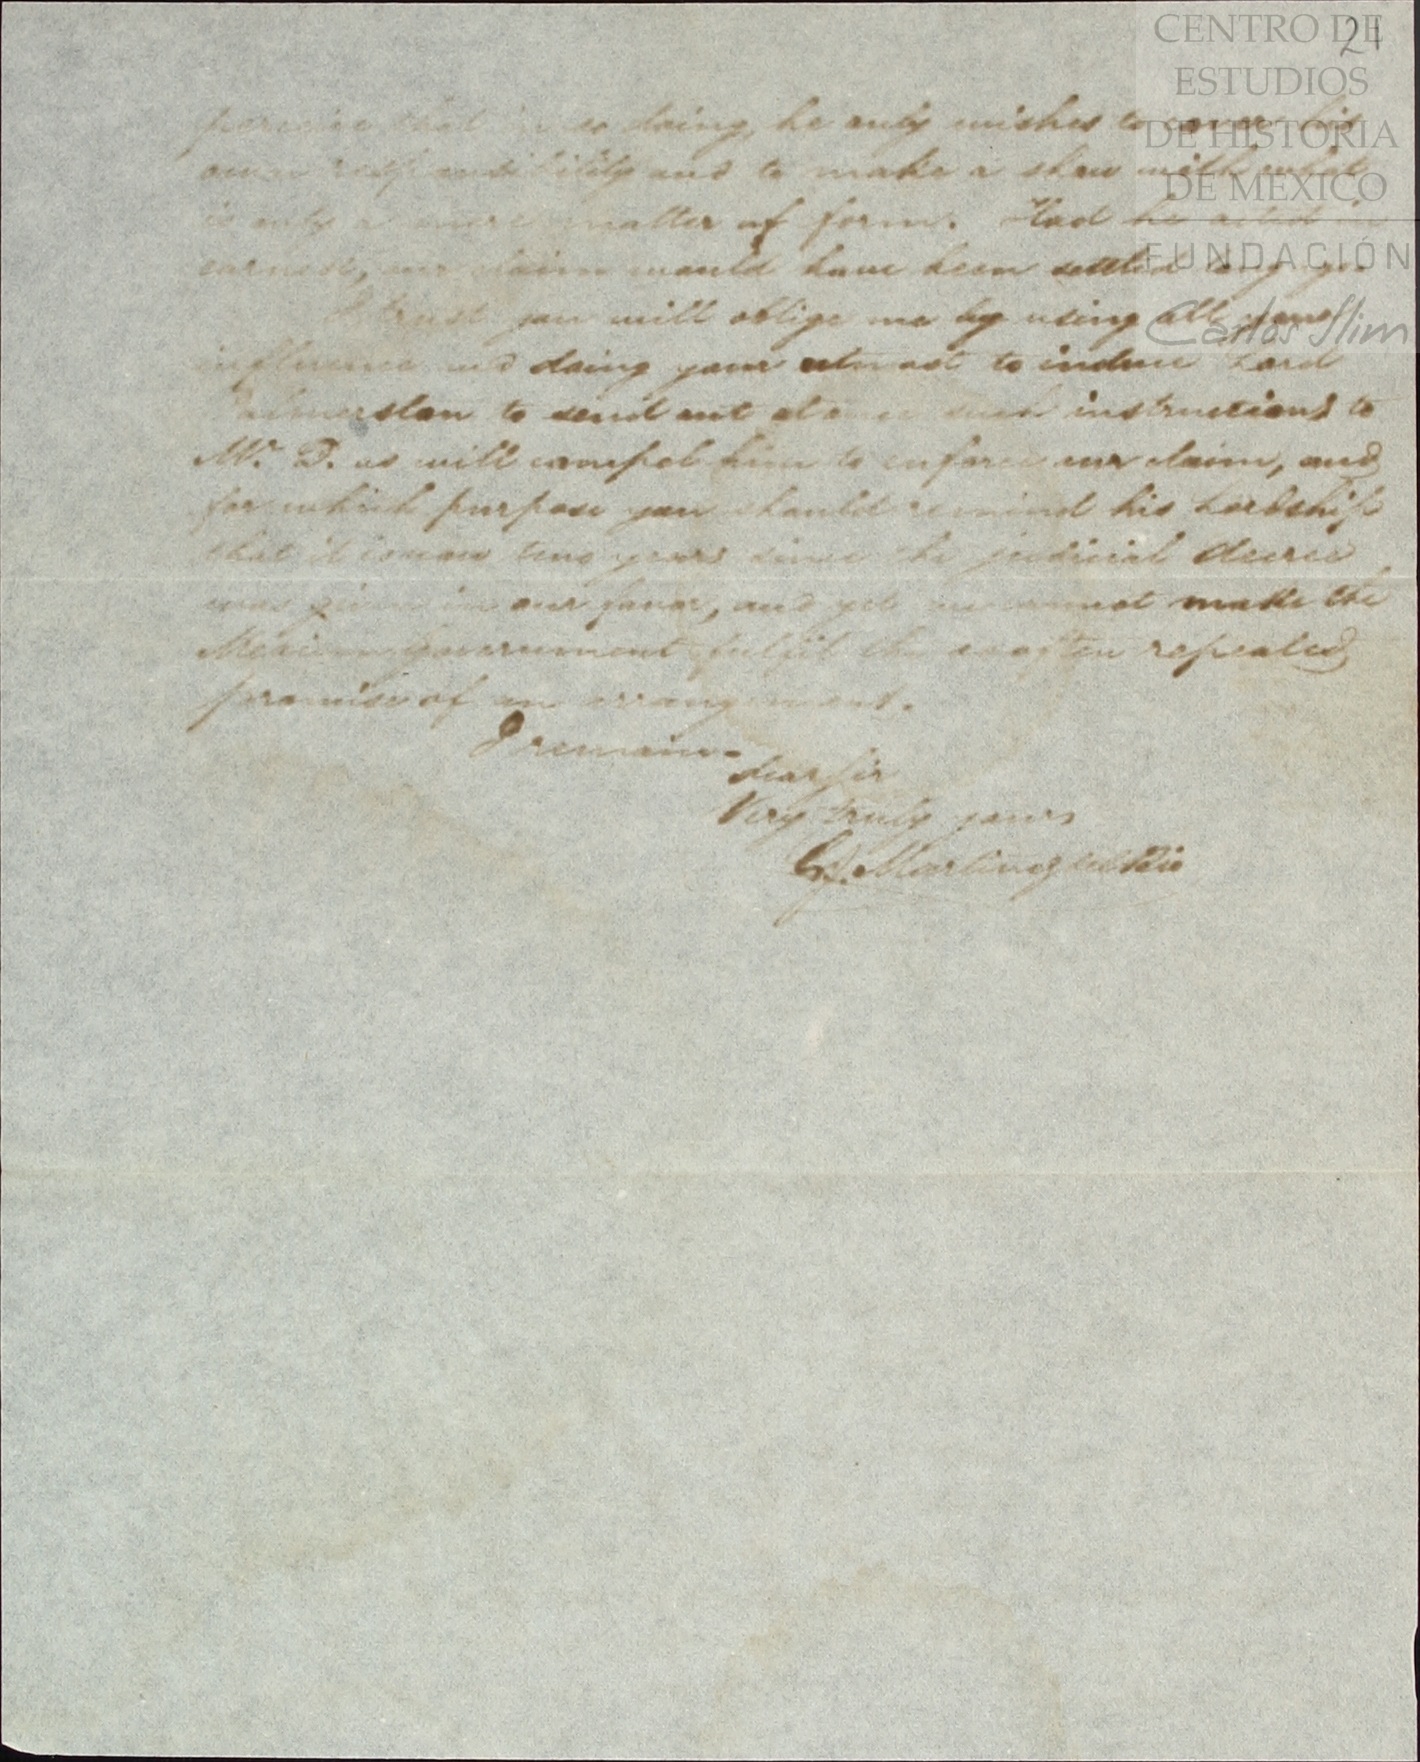 21
CENTRO DE
ESTUDIOS
DE HISTORIA
DE MEXICO
FUNDACIÓN
Carlos Slim
perceive that in so doing, he only wishes to cover his
own responsibility and to make a show with what
is only a mere matter of form. Had he acted in
earnest, our claim would have been settled long ago.
I trust you will oblige me by using all your
influence and doing your utmost to induce Lord
Palmerston to send out at once such instructions to
Mr. D. as will compel him to enforce our claim, and
for which purpose you should remind his Lordship
that it is now two years since the judicial decree
was given in our favor, and yet we cannot make the
Mexican Government fulfil the so often repeated
promise of an arrangement.
I remain
dear Sir
Very truly yours
Martinez del Rio